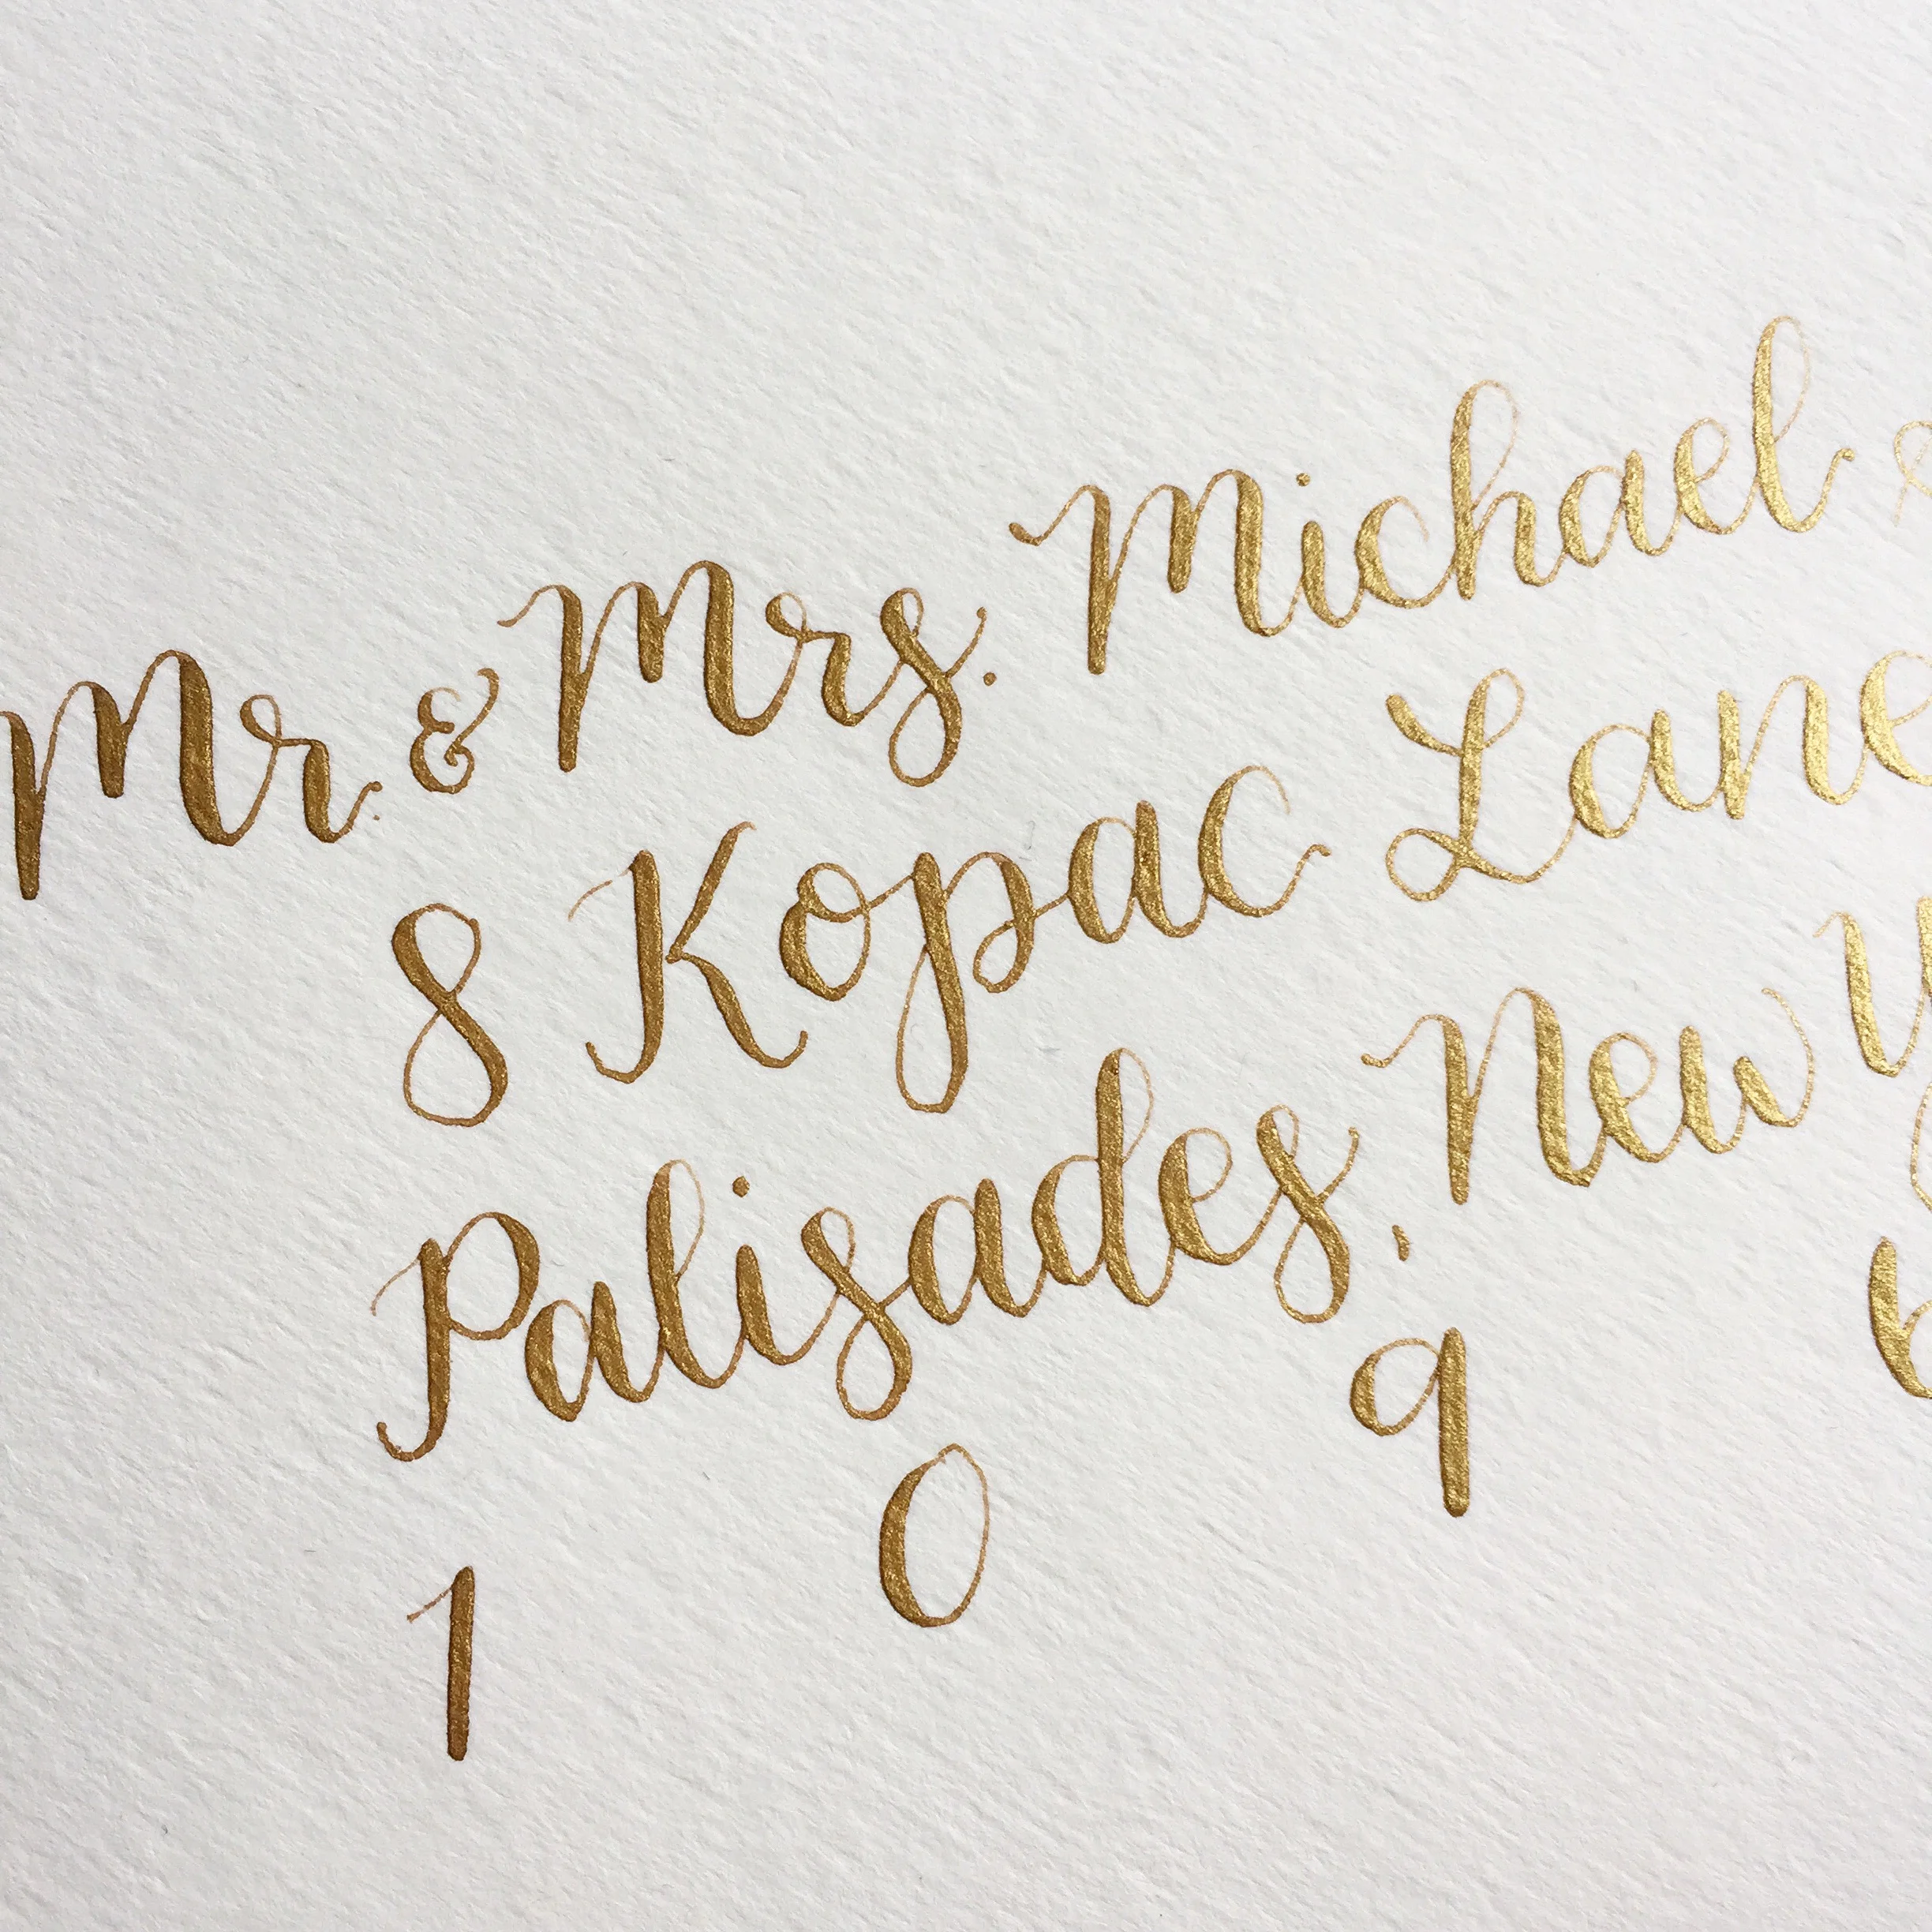 Mr. & Mrs. Michael
8 Kopac Lane
Palisades, New
1 0 9